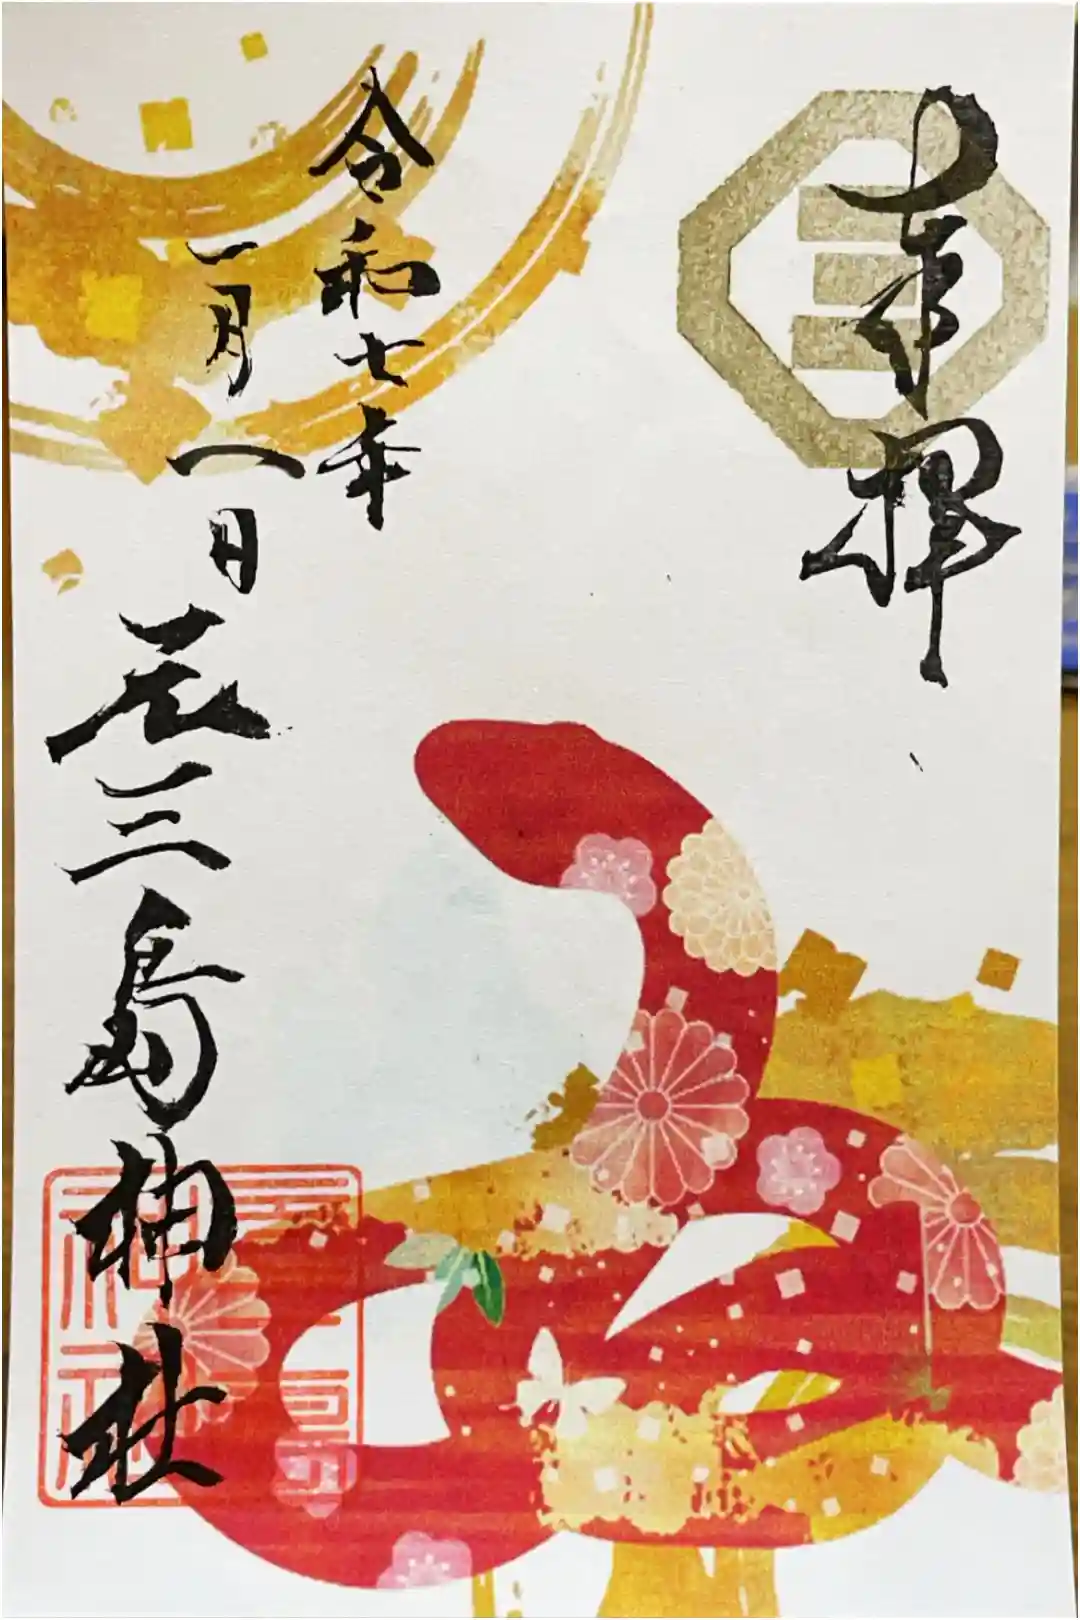 奉拝
令和七年
一月一日
元三島神社